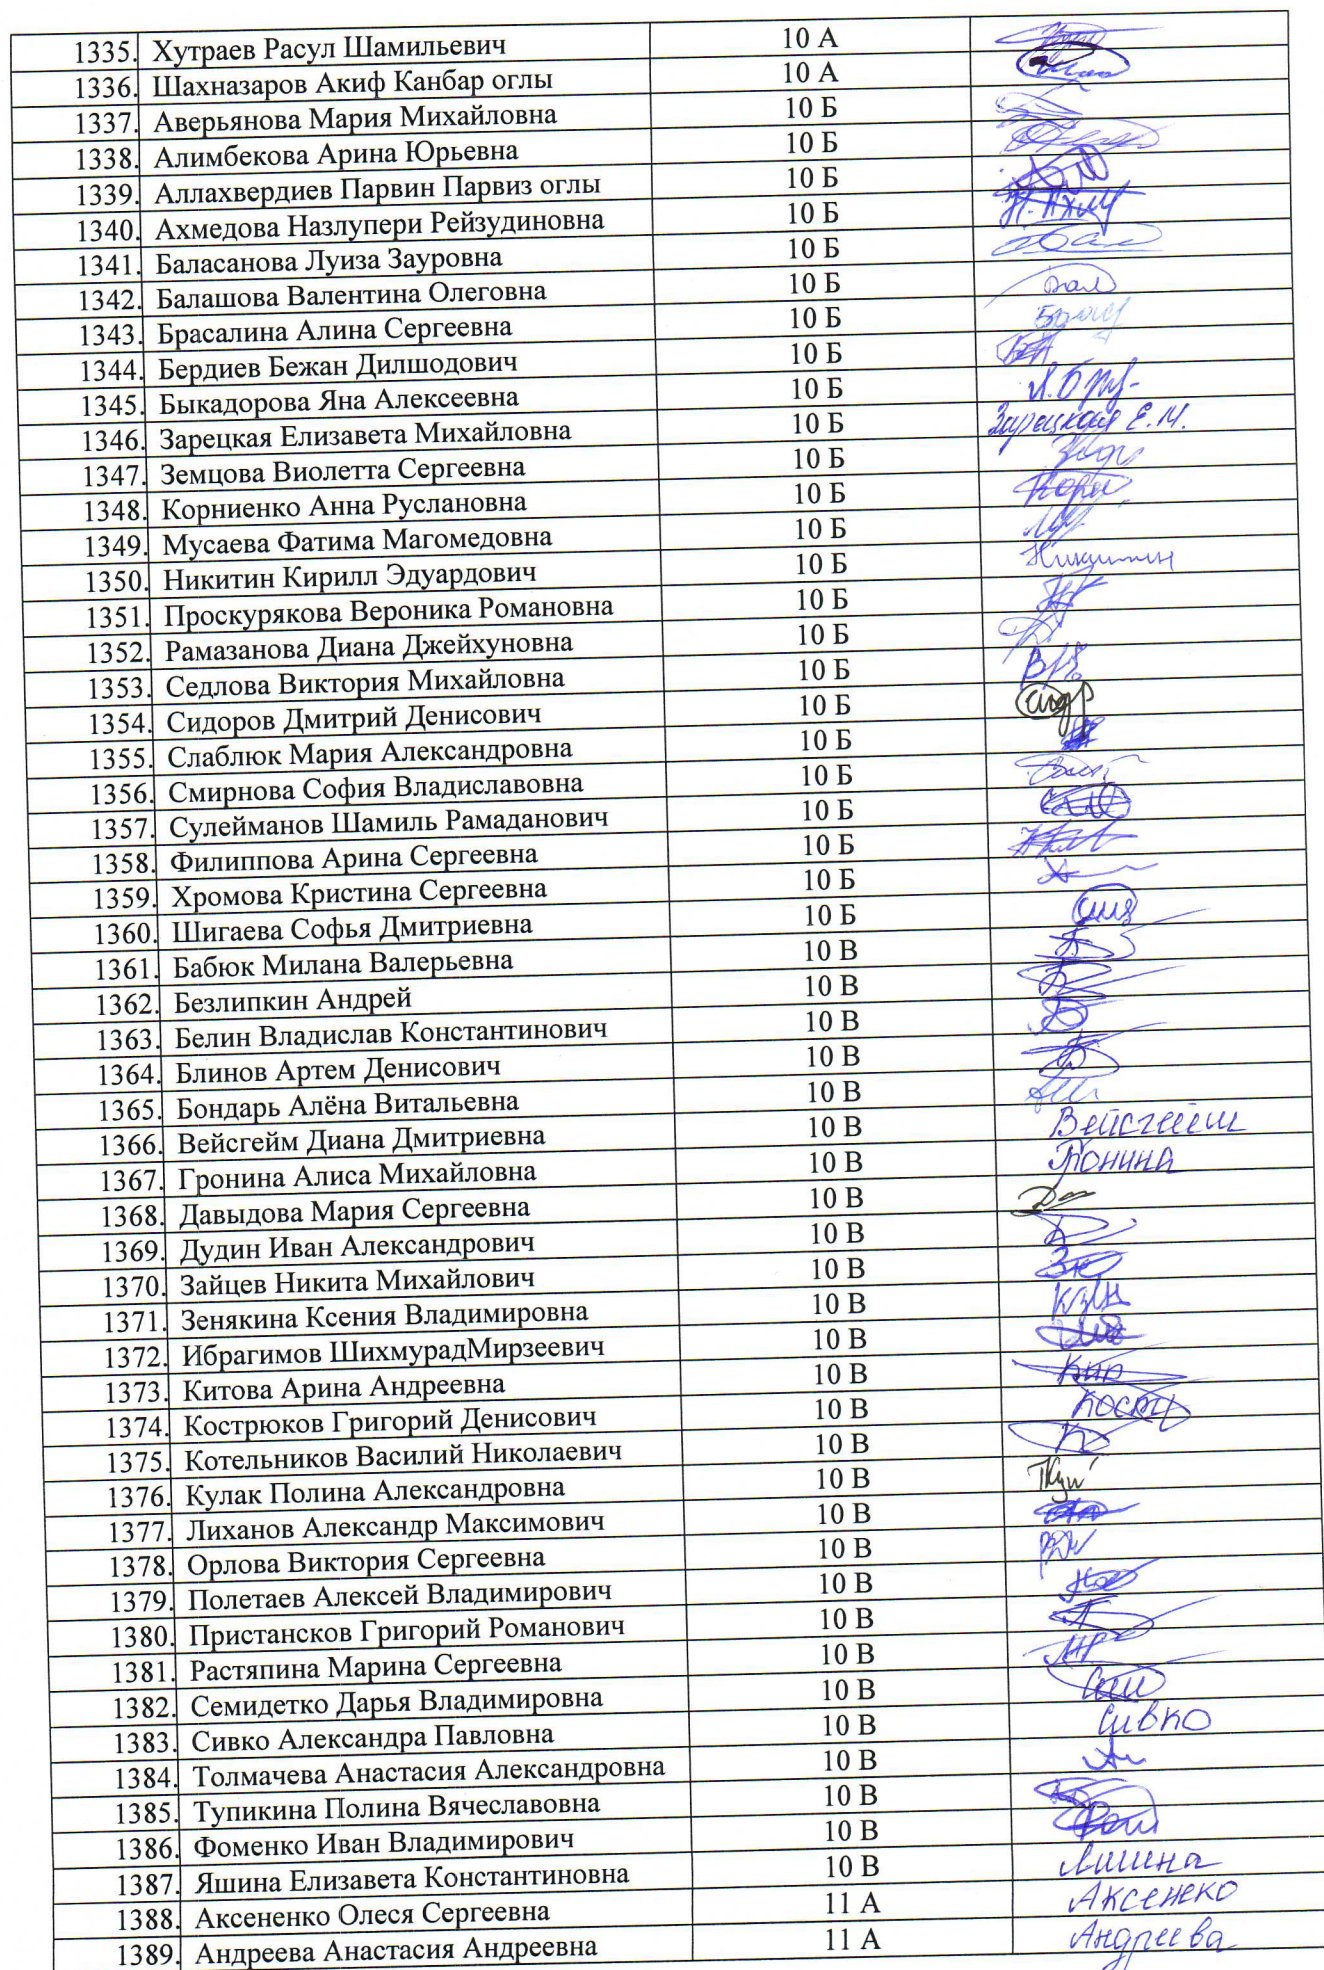 1335. Хутраев Расул Шамильевич 10 А
1336. Шахназаров Акиф Канбар оглы 10 А
1337. Аверьянова Мария Михайловна 10 Б
1338. Алимбекова Арина Юрьевна 10 Б
1339. Аллахвердиев Парвин Парвиз оглы 10 Б
1340. Ахмедова Назлупери Рейзудиновна 10 Б
1341. Баласанова Луиза Зауровна 10 Б
1342. Балашова Валентина Олеговна 10 Б
1343. Брасалина Алина Сергеевна 10 Б
1344. Бердиев Бежан Дилшодович 10 Б
1345. Быкадорова Яна Алексеевна 10 Б
1346. Зарецкая Елизавета Михайловна 10 Б Зарецкая Е.М.
1347. Земцова Виолетта Сергеевна 10 Б
1348. Корниенко Анна Руслановна 10 Б
1349. Мусаева Фатима Магомедовна 10 Б
1350. Никитин Кирилл Эдуардович 10 Б Никитин
1351. Проскурякова Вероника Романовна 10 Б
1352. Рамазанова Диана Джейхуновна 10 Б
1353. Седлова Виктория Михайловна 10 Б
1354. Сидоров Дмитрий Денисович 10 Б
1355. Слаблюк Мария Александровна 10 Б
1356. Смирнова София Владиславовна 10 Б
1357. Сулейманов Шамиль Рамаданович 10 Б
1358. Филиппова Арина Сергеевна 10 Б
1359. Хромова Кристина Сергеевна 10 Б
1360. Шигаева Софья Дмитриевна 10 Б
1361. Бабюк Милана Валерьевна 10 В
1362. Безлипкин Андрей 10 В
1363. Белин Владислав Константинович 10 В
1364. Блинов Артем Денисович 10 В
1365. Бондарь Алёна Витальевна 10 В
1366. Вейсгейм Диана Дмитриевна 10 В Вейсгейм
1367. Гронина Алиса Михайловна 10 В Гронина
1368. Давыдова Мария Сергеевна 10 В
1369. Дудин Иван Александрович 10 В
1370. Зайцев Никита Михайлович 10 В
1371. Зенякина Ксения Владимировна 10 В
1372. Ибрагимов ШихмурадМирзеевич 10 В
1373. Китова Арина Андреевна 10 В
1374. Кострюков Григорий Денисович 10 В
1375. Котельников Василий Николаевич 10 В
1376. Кулак Полина Александровна 10 В
1377. Лиханов Александр Максимович 10 В
1378. Орлова Виктория Сергеевна 10 В
1379. Полетаев Алексей Владимирович 10 В
1380. Пристансков Григорий Романович 10 В
1381. Растяпина Марина Сергеевна 10 В
1382. Семидетко Дарья Владимировна 10 В
1383. Сивко Александра Павловна 10 В Сивко
1384. Толмачева Анастасия Александровна 10 В
1385. Тупикина Полина Вячеславовна 10 В
1386. Фоменко Иван Владимирович 10 В
1387. Яшина Елизавета Константиновна 10 В Яшина
1388. Аксененко Олеся Сергеевна 11 А Аксенеко
1389. Андреева Анастасия Андреевна 11 А Андреева